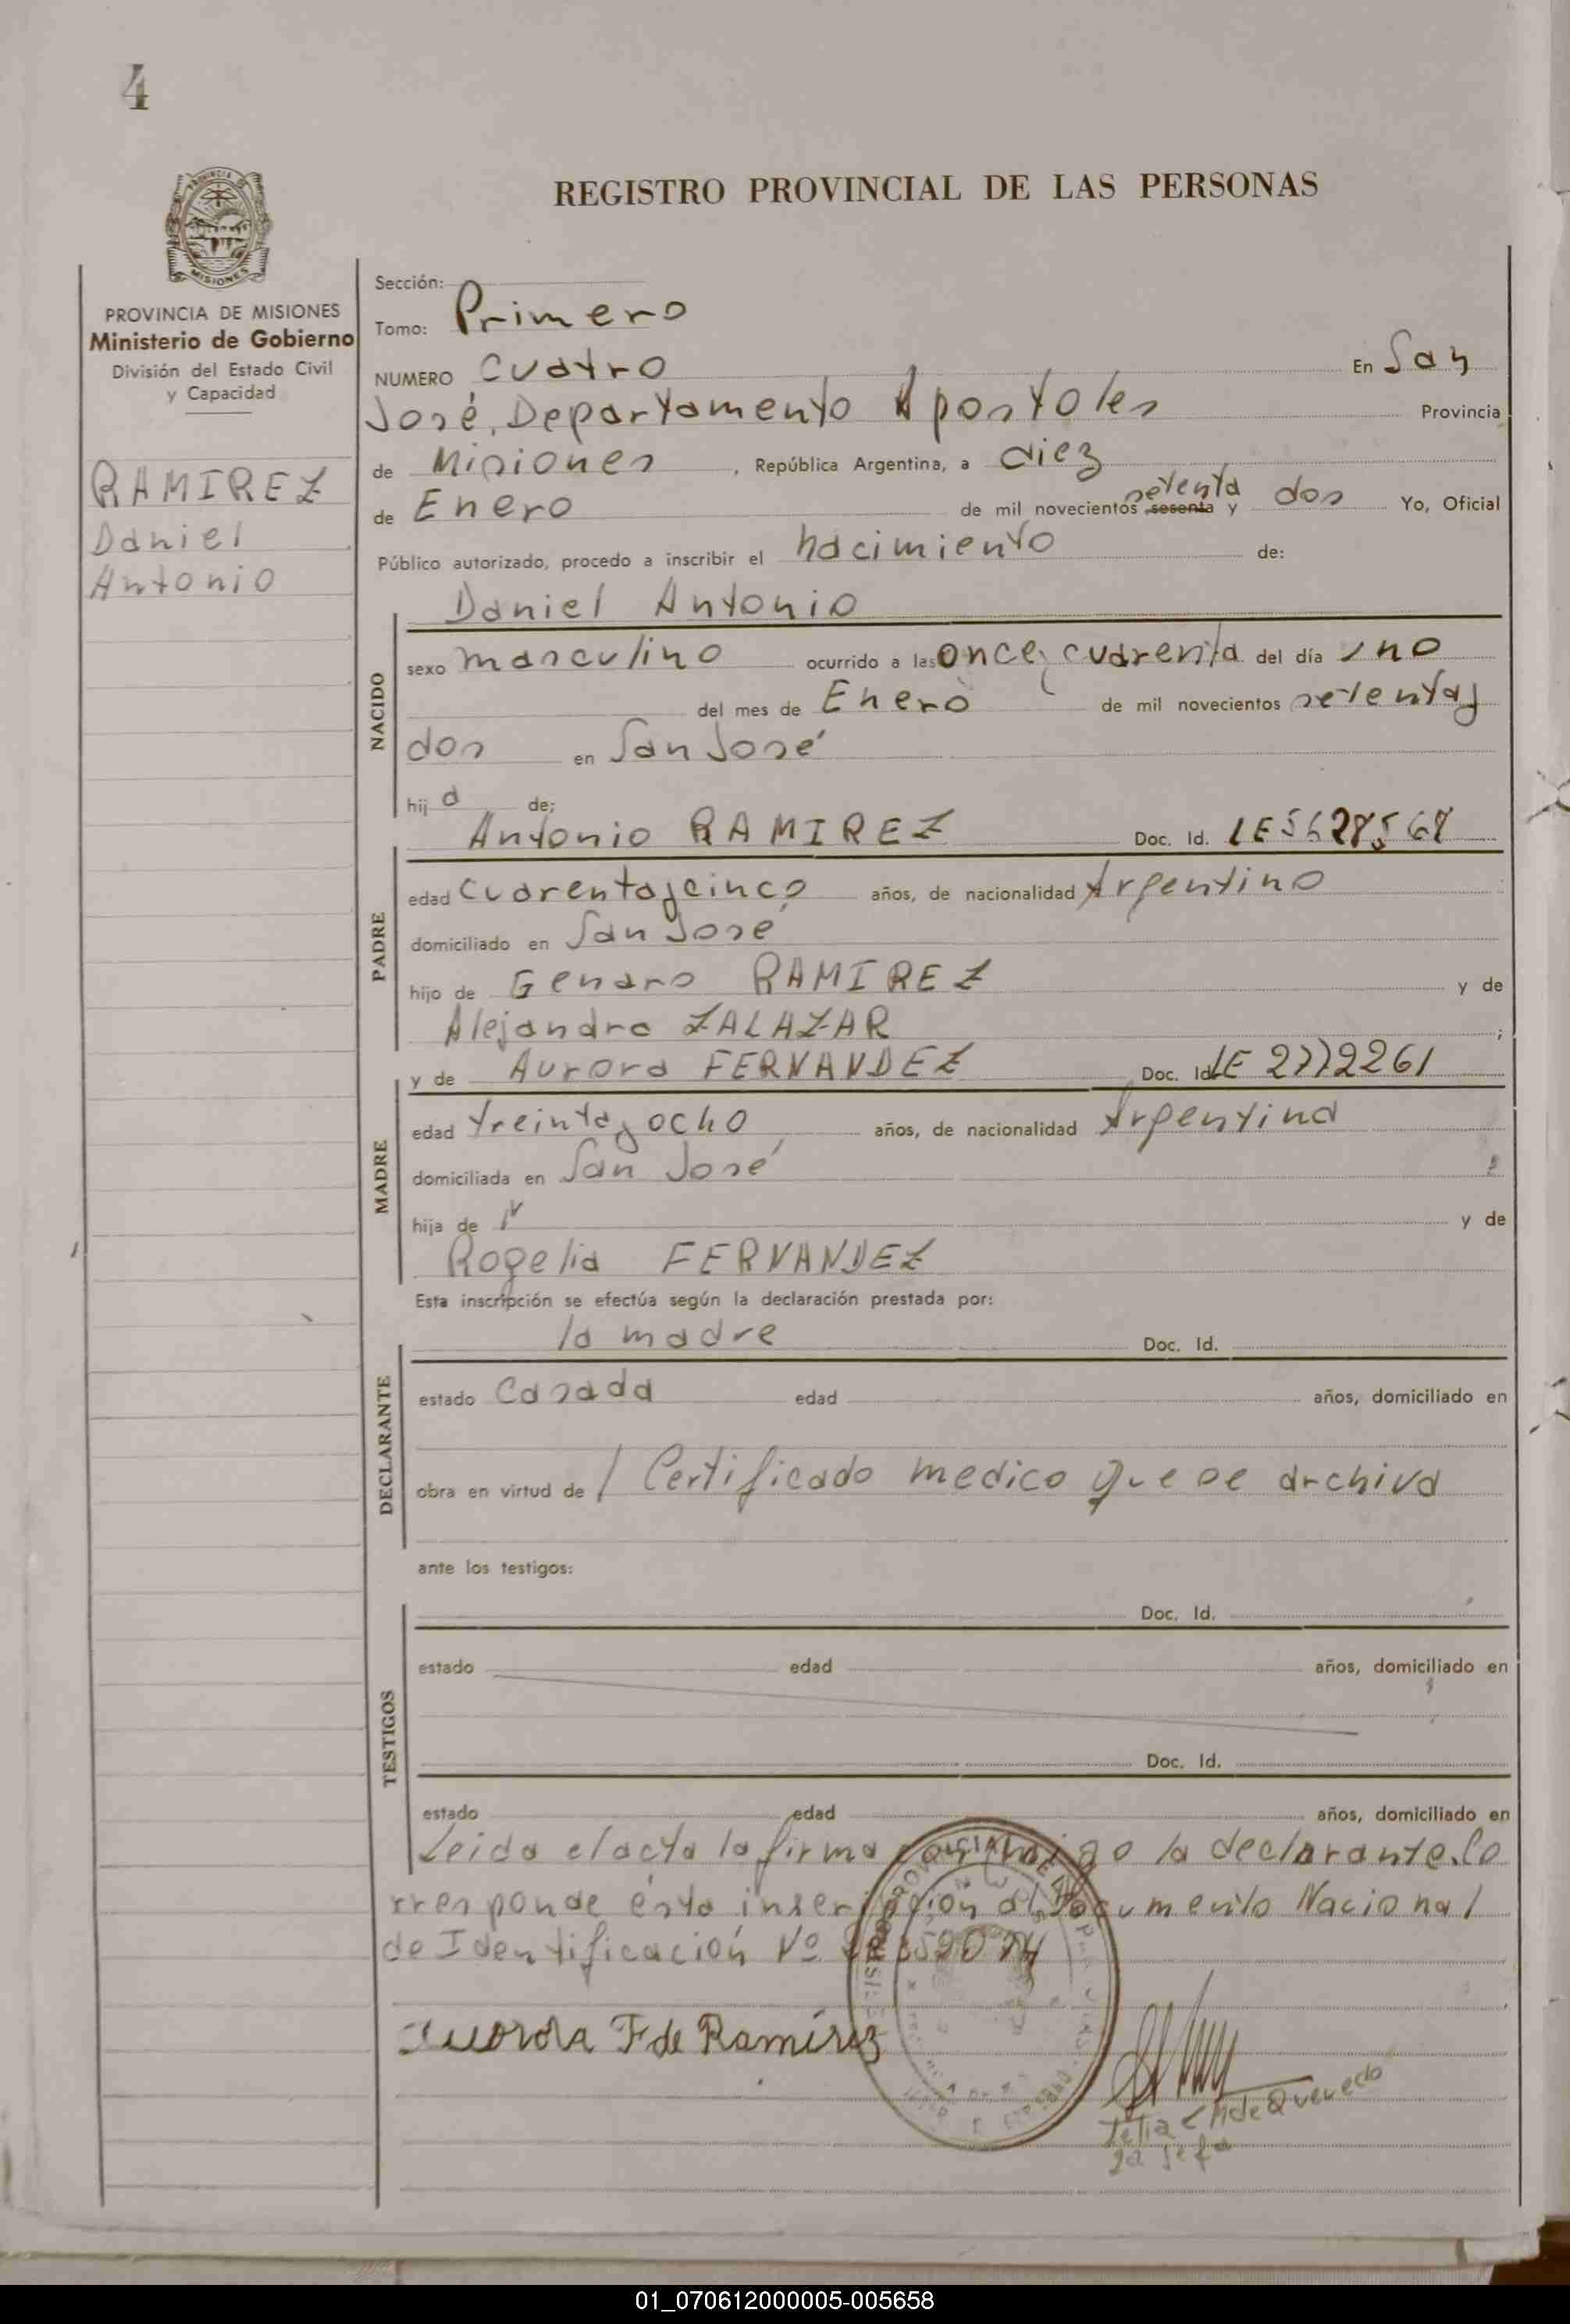 4
REGISTRO PROVINCIAL DE LAS PERSONAS
PROVINCIA DE MISIONES
Ministerio de Gobierno
División del Estado Civil
y Capacidad
RAMIREZ
Daniel
Antonio
Sección:
Tomo: Primero
NUMERO cuatro En San
José, Departamento Apostoles Provincia
de Misiones, República Argentina, a diez
de Enero de mil novecientos sesenta setenta y dos Yo, Oficial
Público autorizado, procedo a inscribir el nacimiento de:
Daniel Antonio
NACIDO
sexo masculino ocurrido a las once y cuarenta del día uno
del mes de Enero de mil novecientos setenta y
dos en San José
hij o de;
Antonio RAMIREZ Doc. Id. LE
PADRE
edad cuarenta y cinco años, de nacionalidad Argentino
domiciliado en San José
hijo de Genaro RAMIREZ y de
Alejandra ZALAZAR ;
y de Aurora FERNANDEZ Doc. Id.
MADRE
edad treinta y ocho años, de nacionalidad Argentina
domiciliada en San José
hija de y de
Rogelia FERNANDEZ
Esta inscripción se efectúa según la declaración prestada por:
la madre Doc. Id.
DECLARANTE
estado Casada edad años, domiciliado en
obra en virtud de / Certificado medico que se archiva
ante los testigos:
Doc. Id.
TESTIGOS
estado edad años, domiciliado en
Doc. Id.
estado edad años, domiciliado en
Leida el acta la firma conmigo la declarante. Co
rresponde ésta inscripción al Documento Nacional
de Identificación Nº
Aurora F de Ramírez
de Quevedo
01_070612000005-005658